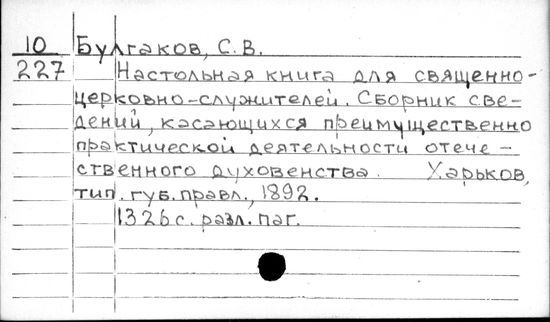 10 Булгаков, С.В.
227 Настольная книга для священно-
церковно-служителей. Сборник све-
дений, касающихся преимущественно
практической деятельности отече-
ственного духовенства. Харьков,
тип. губ. правл., 1892.
1326 с. разл. паг.